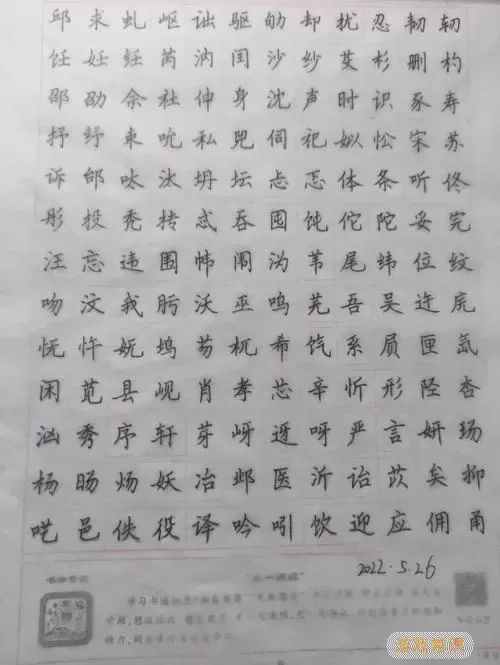 邱求虬岖诎驱劬却扰忍韧轫
饪妊纴芮汭闰沙纱芟杉删杓
邵劭佘社伸身沈声时识豕寿
抒纾束吮私兕伺祀姒忪宋苏
诉邰呔汰坍坛忐忑体条听佟
彤投秃抟忒吞囤饨佗陀妥完
汪忘违围帏闱沩苇尾纬位纹
吻汶我肟沃巫呜芜吾吴迕庑
怃忤妩坞芴杌希饩系屃匣氙
闲苋县岘肖孝芯辛忻形陉杏
汹秀序轩芽岈迓呀严言妍玚
杨旸炀妖冶邺医沂诒苡矣抑
呓邑佚役译吟吲饮迎应佣甬
2022.5.26
学习书法